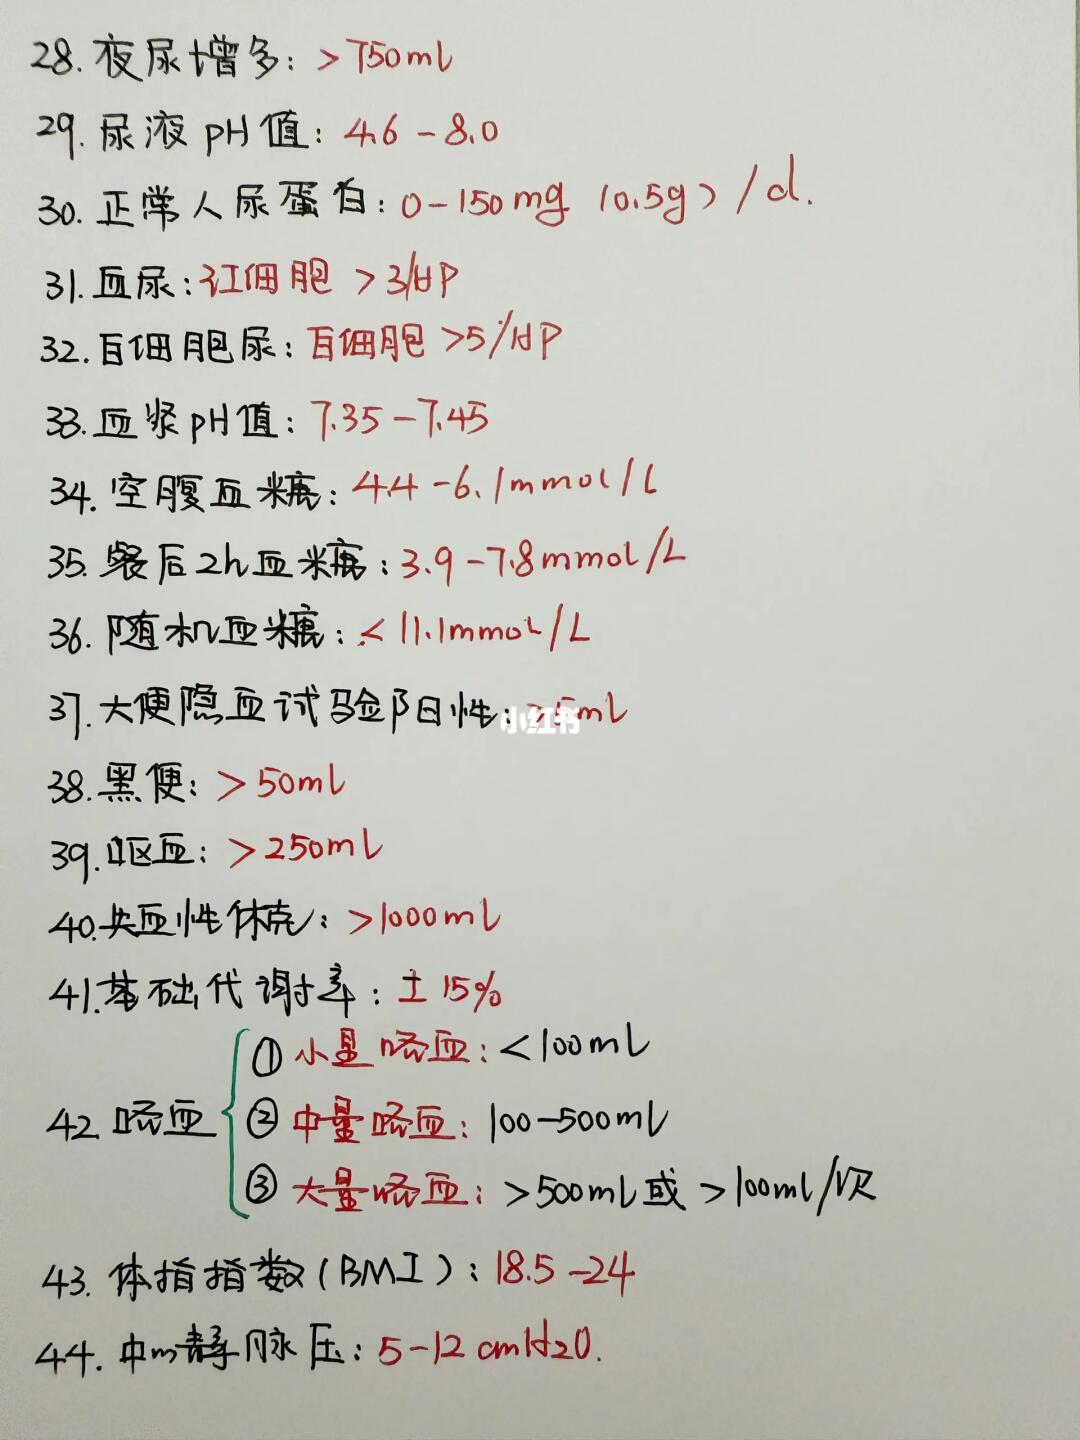 28. 夜尿增多: >750ml
29. 尿液pH值: 4.6-8.0
30. 正常人尿蛋白: 0-150mg (0.5g)/d.
31. 血尿: 红细胞 >3/HP
32. 白细胞尿: 白细胞 >5/HP
33. 血浆pH值: 7.35-7.45
34. 空腹血糖: 4.4-6.1mmol/L
35. 餐后2h血糖: 3.9-7.8mmol/L
36. 随机血糖: <11.1mmol/L
37. 大便隐血试验阳性: >5ml
小红书
38. 黑便: >50ml
39. 呕血: >250ml
40. 失血性休克: >1000ml
41. 基础代谢率: ±15%
42 咯血
① 小量咯血: <100ml
② 中量咯血: 100-500ml
③ 大量咯血: >500ml或 >100ml/次
43. 体指指数(BMI): 18.5-24
44. 中m静脉压: 5-12cmH2O.